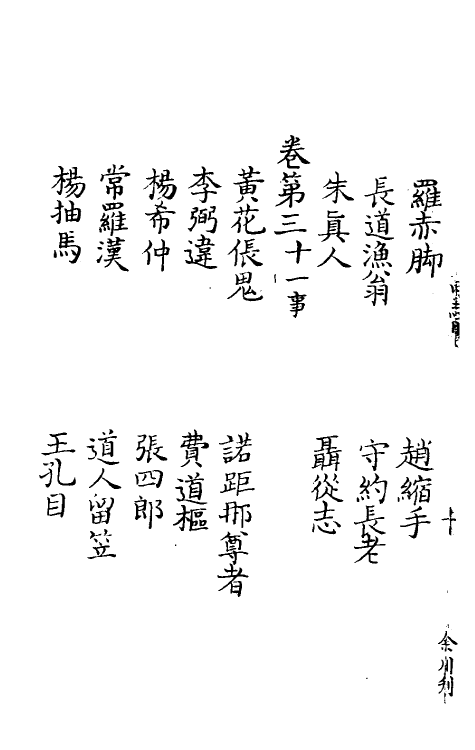 羅赤脚 趙縮手
長道漁翁 守約長老
朱眞人 聶從志
卷第三十一事
黃花倀鬼 諾距那尊者
李弼違 費道樞
楊希仲 張四郎
常羅漢 道人留笠
楊抽馬 王孔目